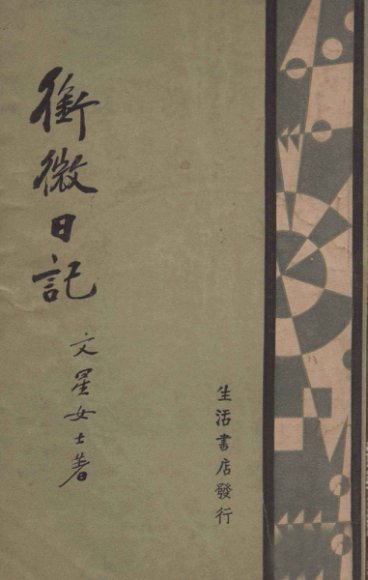 衝微日記
文星女士著
生活書店發行